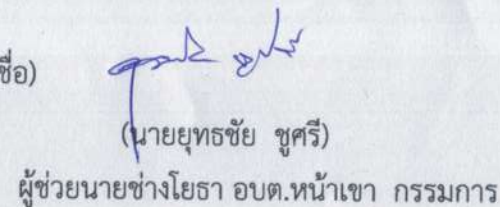 ชื่อ)
(นายยุทธชัย ชูศรี)
ผู้ช่วยนายช่างโยธา อบต.หน้าเขา กรรมการ